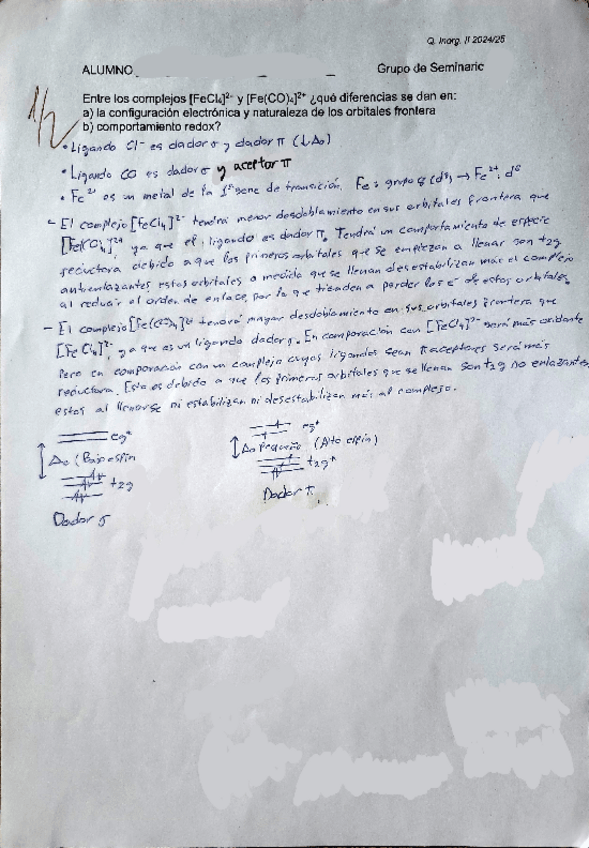 Q. Inorg. II 2024/25
ALUMNO
Grupo de Seminario
Entre los complejos [FeCl₄]²⁻ y [Fe(CO)₄]²⁺ ¿qué diferencias se dan en:
a) la configuración electrónica y naturaleza de los orbitales frontera
b) comportamiento redox?
1/2
• Ligando Cl⁻ es dador σ y dador π (↓Δo)
• Ligando CO es dador σ y aceptor π
• Fe²⁺ es un metal de la 1ª serie de transición. Fe: grupo 8 (d⁸) → Fe²⁺: d⁶
- El complejo [FeCl₄]²⁻ tendrá menor desdoblamiento en sus orbitales frontera que
[Fe(CO)₄]²⁺ ya que el ligando es dador π. Tendrá un comportamiento de especie
reductora debido a que los primeros orbitales que se empiezan a llenar son t2g
antienlazantes estos orbitales a medida que se llenan desestabilizan más el complejo
al reducir el orden de enlace, por lo que tienden a perder los e⁻ de estos orbitales.
- El complejo [Fe(CO)₄]²⁺ tendrá mayor desdoblamiento en sus orbitales frontera que
[FeCl₄]²⁻, ya que es un ligando dador σ. En comparación con [FeCl₄]²⁻ será más oxidante
pero en comparación con un complejo cuyos ligandos sean π aceptores será más
reductora. Esto es debido a que los primeros orbitales que se llenan son t2g no enlazantes
estos al llenarse ni estabilizan ni desestabilizan más al complejo.
eg*
Δo (Bajo espín
t2g
Dador σ
eg*
Δo Pequeño (Alto espín)
t2g*
Dador π